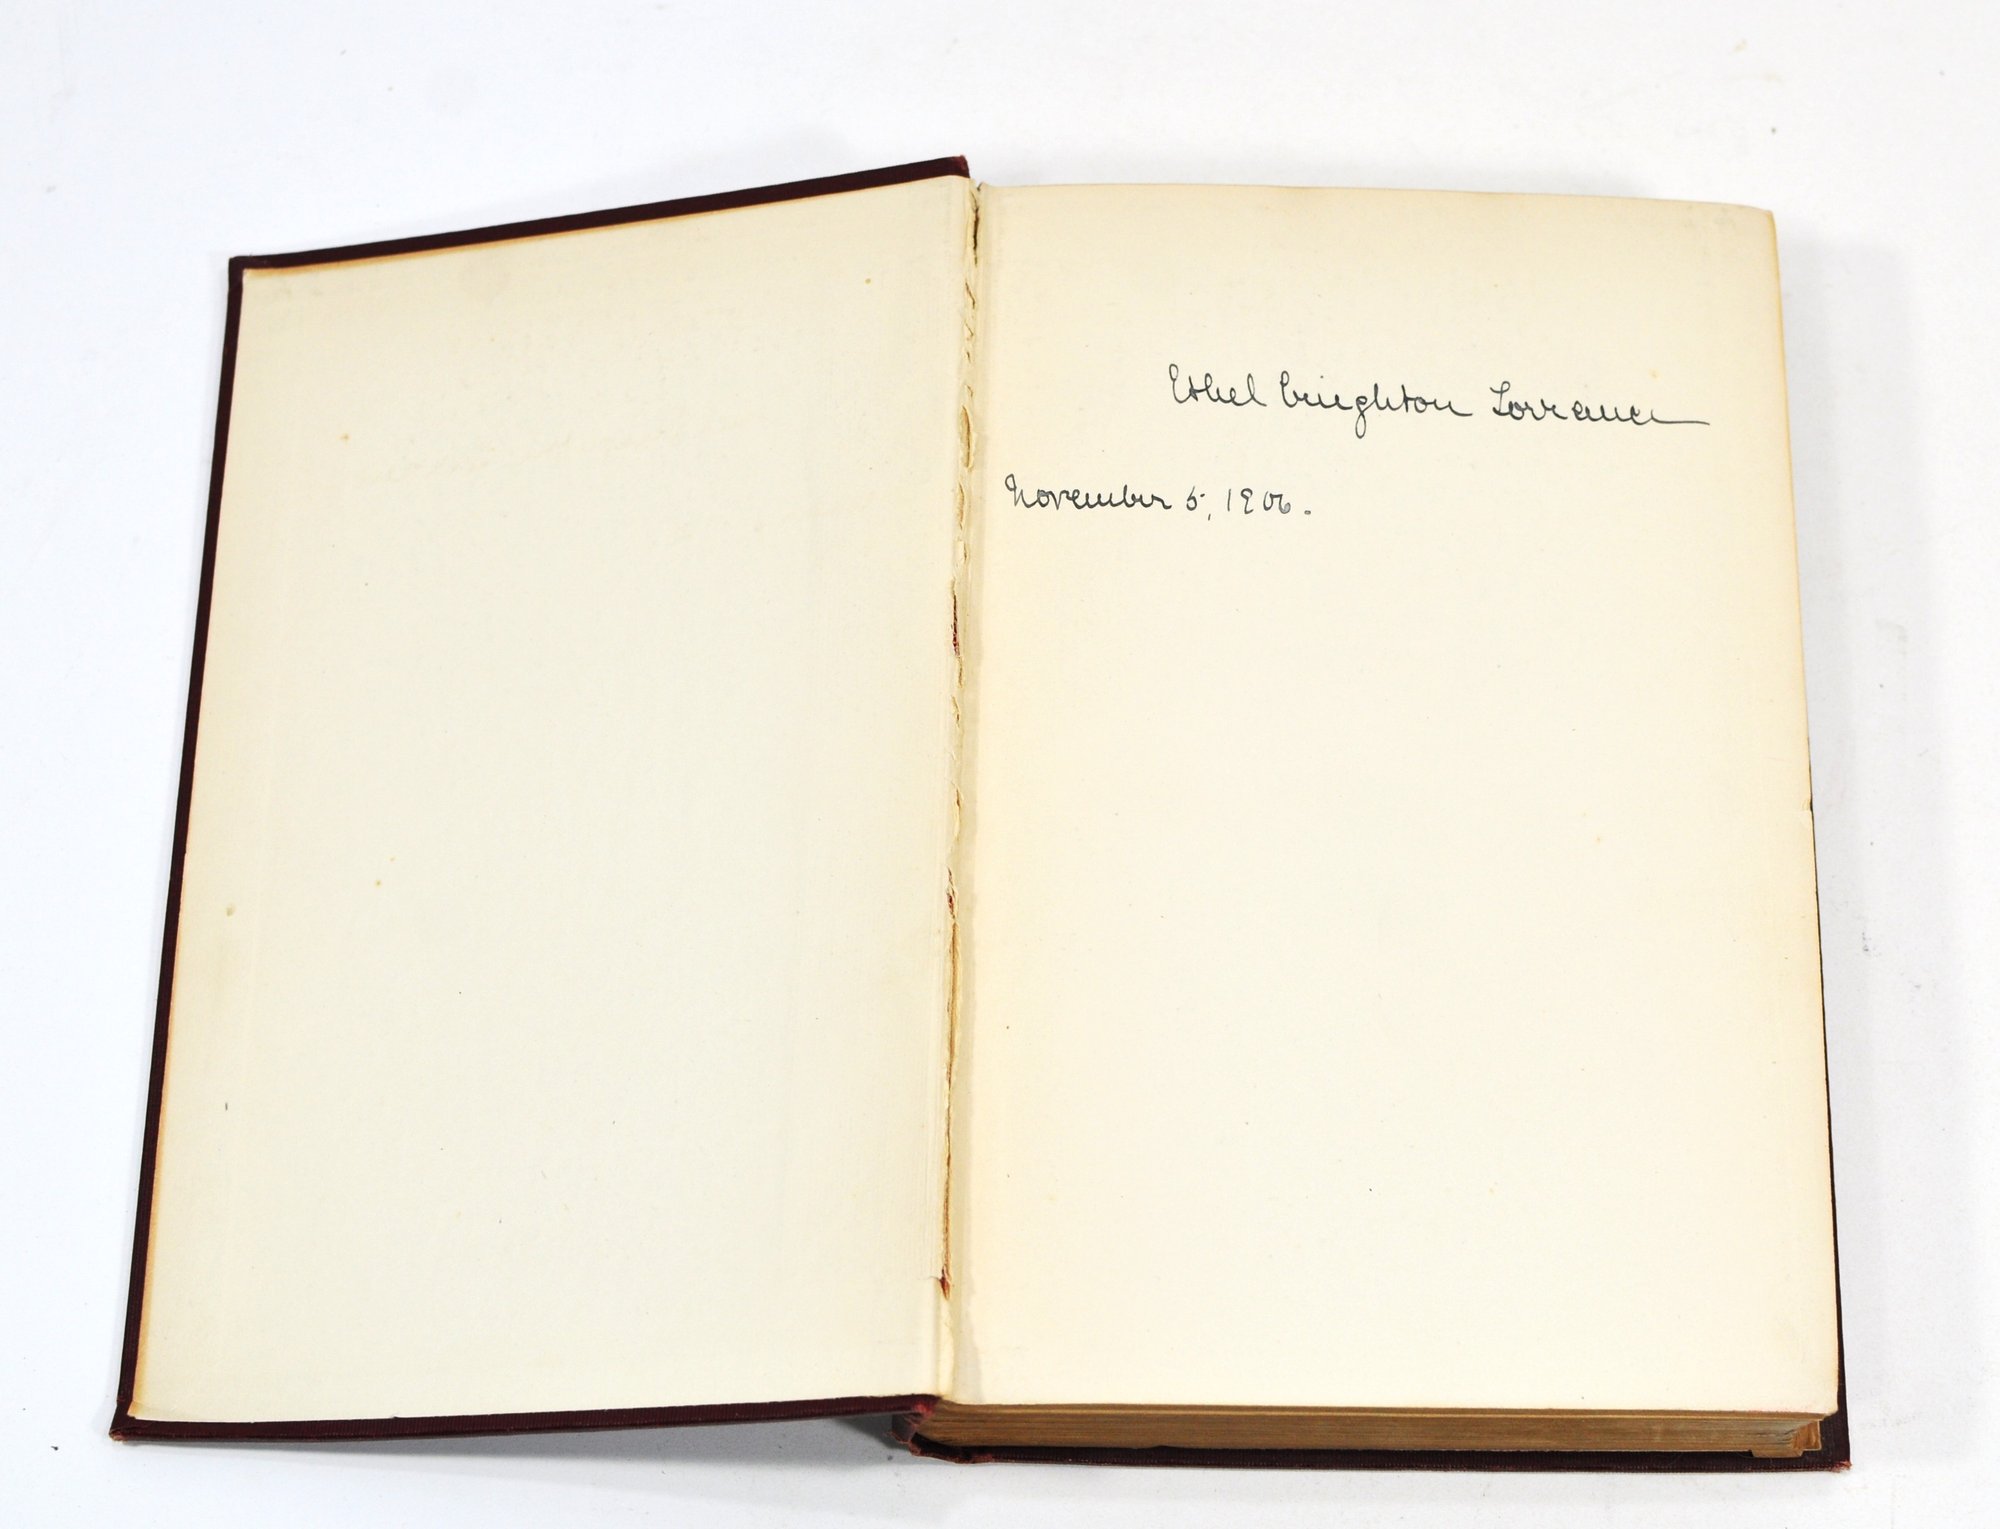 Ethel Creighton Torrance
November 5, 1906.